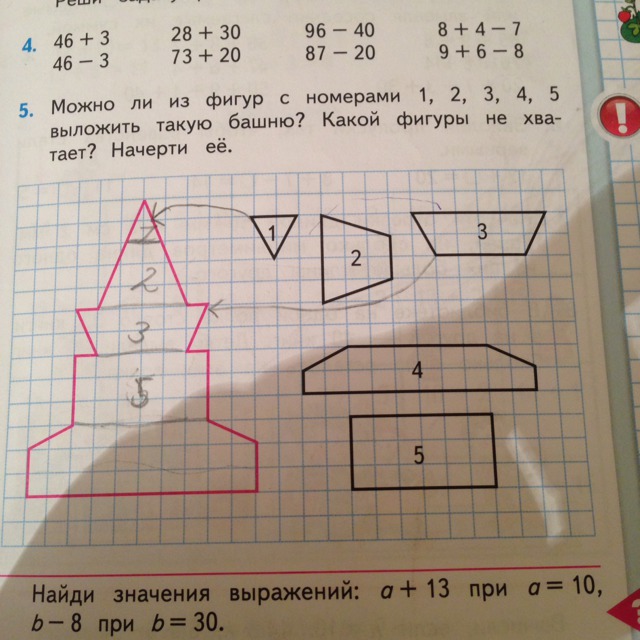 4. 46 + 3 28 + 30 96 − 40 8 + 4 − 7
46 − 3 73 + 20 87 − 20 9 + 6 − 8
5. Можно ли из фигур с номерами 1, 2, 3, 4, 5
выложить такую башню? Какой фигуры не хва-
тает? Начерти её.
1
2
3
4
5
2
3
5
!
Найди значения выражений: a + 13 при a = 10,
b − 8 при b = 30.